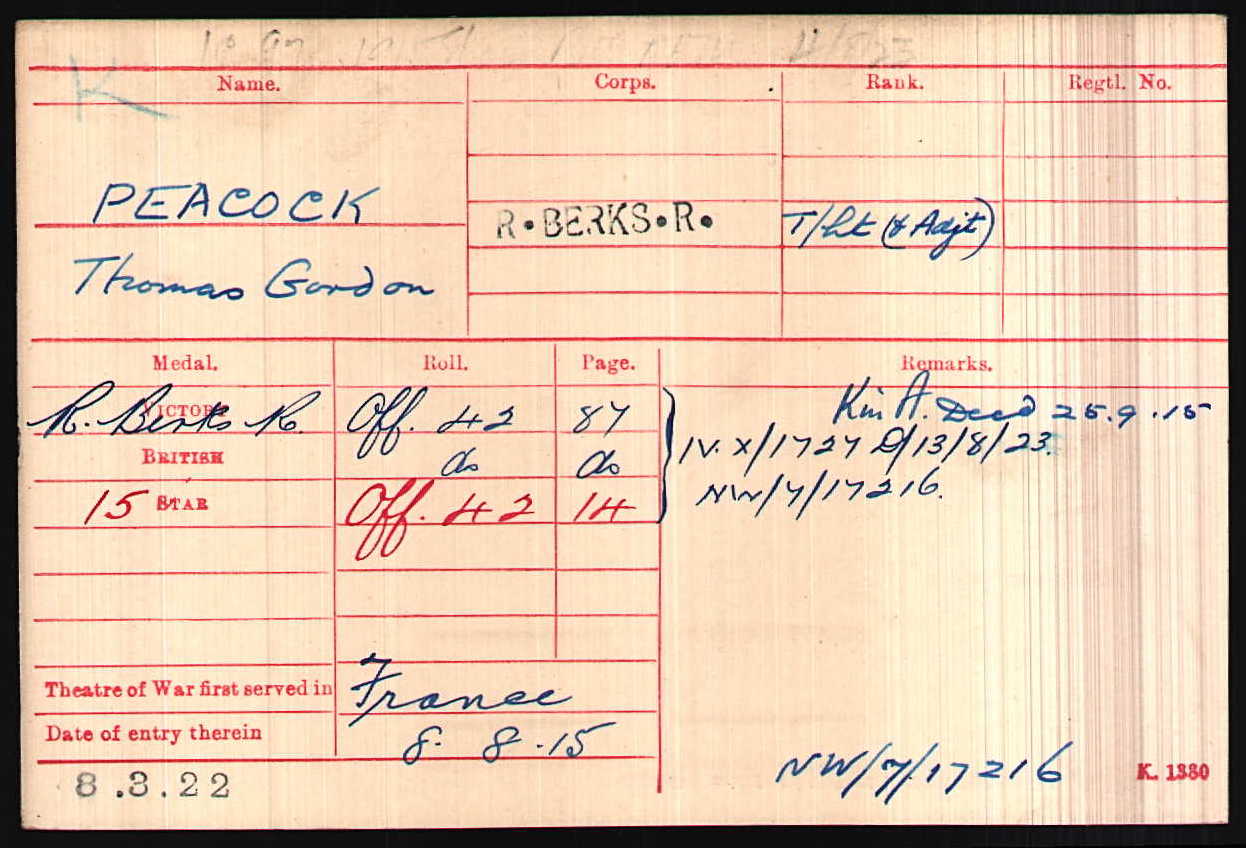 K
Name. Corps. Rank. Regtl. No.
PEACOCK R•BERKS•R• T/Lt (& Adjt)
Thomas Gordon
Medal. Roll. Page. Remarks.
R. Berks R. VICTORY Off. 42 87 Kin A. Decd 25.9.15
BRITISH do do IV. X/1727 D/13/8/23.
15 STAR Off. 42 14 NW/7/17216.
Theatre of War first served in France
Date of entry therein 8. 8.15
8.3.22 NW/7/17216 K. 1380